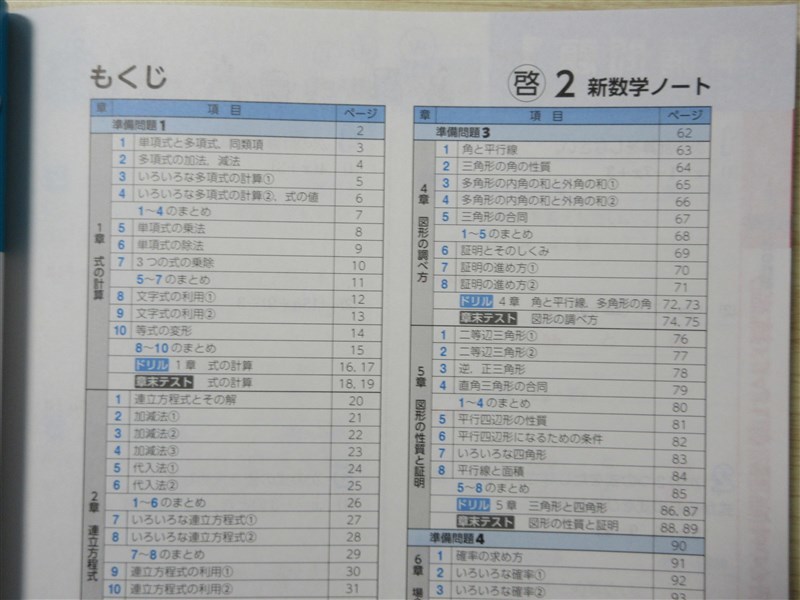 もくじ
啓 2 新数学ノート
章 項目 ページ
準備問題1 2
1章 式の計算
1 単項式と多項式，同類項 3
2 多項式の加法，減法 4
3 いろいろな多項式の計算① 5
4 いろいろな多項式の計算②，式の値 6
1〜4のまとめ 7
5 単項式の乗法 8
6 単項式の除法 9
7 3つの式の乗除 10
5〜7のまとめ 11
8 文字式の利用① 12
9 文字式の利用② 13
10 等式の変形 14
8〜10のまとめ 15
ドリル 1章 式の計算 16, 17
章末テスト 式の計算 18, 19
2章 連立方程式
1 連立方程式とその解 20
2 加減法① 21
3 加減法② 22
4 加減法③ 23
5 代入法① 24
6 代入法② 25
1〜6のまとめ 26
7 いろいろな連立方程式① 27
8 いろいろな連立方程式② 28
7〜8のまとめ 29
9 連立方程式の利用① 30
10 連立方程式の利用② 31
章 項目 ページ
準備問題3 62
4章 図形の調べ方
1 角と平行線 63
2 三角形の角の性質 64
3 多角形の内角の和と外角の和① 65
4 多角形の内角の和と外角の和② 66
5 三角形の合同 67
1〜5のまとめ 68
6 証明とそのしくみ 69
7 証明の進め方① 70
8 証明の進め方② 71
ドリル 4章 角と平行線，多角形の角 72, 73
章末テスト 図形の調べ方 74, 75
5章 図形の性質と証明
1 二等辺三角形① 76
2 二等辺三角形② 77
3 逆，正三角形 78
4 直角三角形の合同 79
1〜4のまとめ 80
5 平行四辺形の性質 81
6 平行四辺形になるための条件 82
7 いろいろな四角形 83
8 平行線と面積 84
5〜8のまとめ 85
ドリル 5章 三角形と四角形 86, 87
章末テスト 図形の性質と証明 88, 89
準備問題4 90
6章 場
1 確率の求め方 91
2 いろいろな確率① 92
3 いろいろな確率② 93